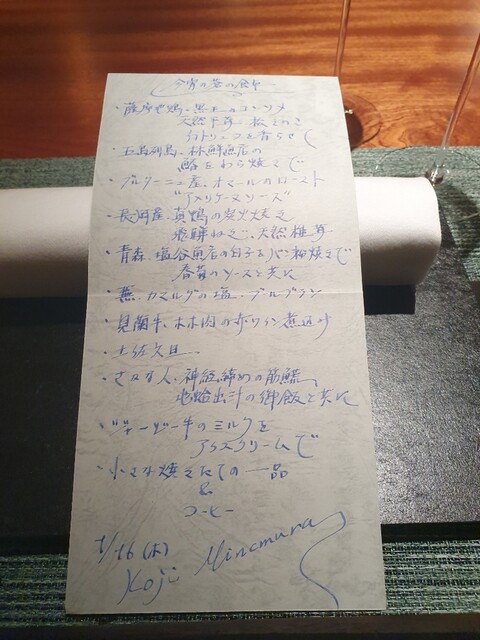 ・薩摩地鶏、黒王のコンソメ
天然平茸
白トリュフを
・五島列島、林鮮魚店の
鮨をわら焼きで
・ブルターニュ産、オマールのロースト
"アメリケーヌソース"
・長岡産、真鴨の炭火焼き
飛騨ねぎ、天然椎茸
・青森、塩谷魚店の白子をパン粉焼きで
春菊のソースと共に
・蕪、カマルグの塩、ブールブラン
・見蘭牛、ホホ肉の赤ワイン煮込み
・土佐文旦
神経締めの
出汁の御飯と共に
・ジャージー牛のミルクを
アイスクリームで
・小さな焼きたての一品
&
コーヒー
1/16(木)
Koji Minemura